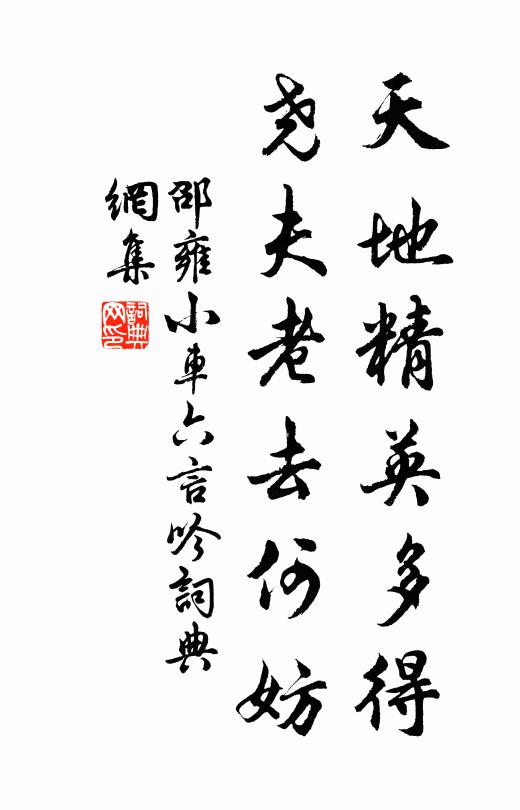 天地精英多得
尧夫老去何妨
邵雍小車六言吟詞典
網集
詞典
网印